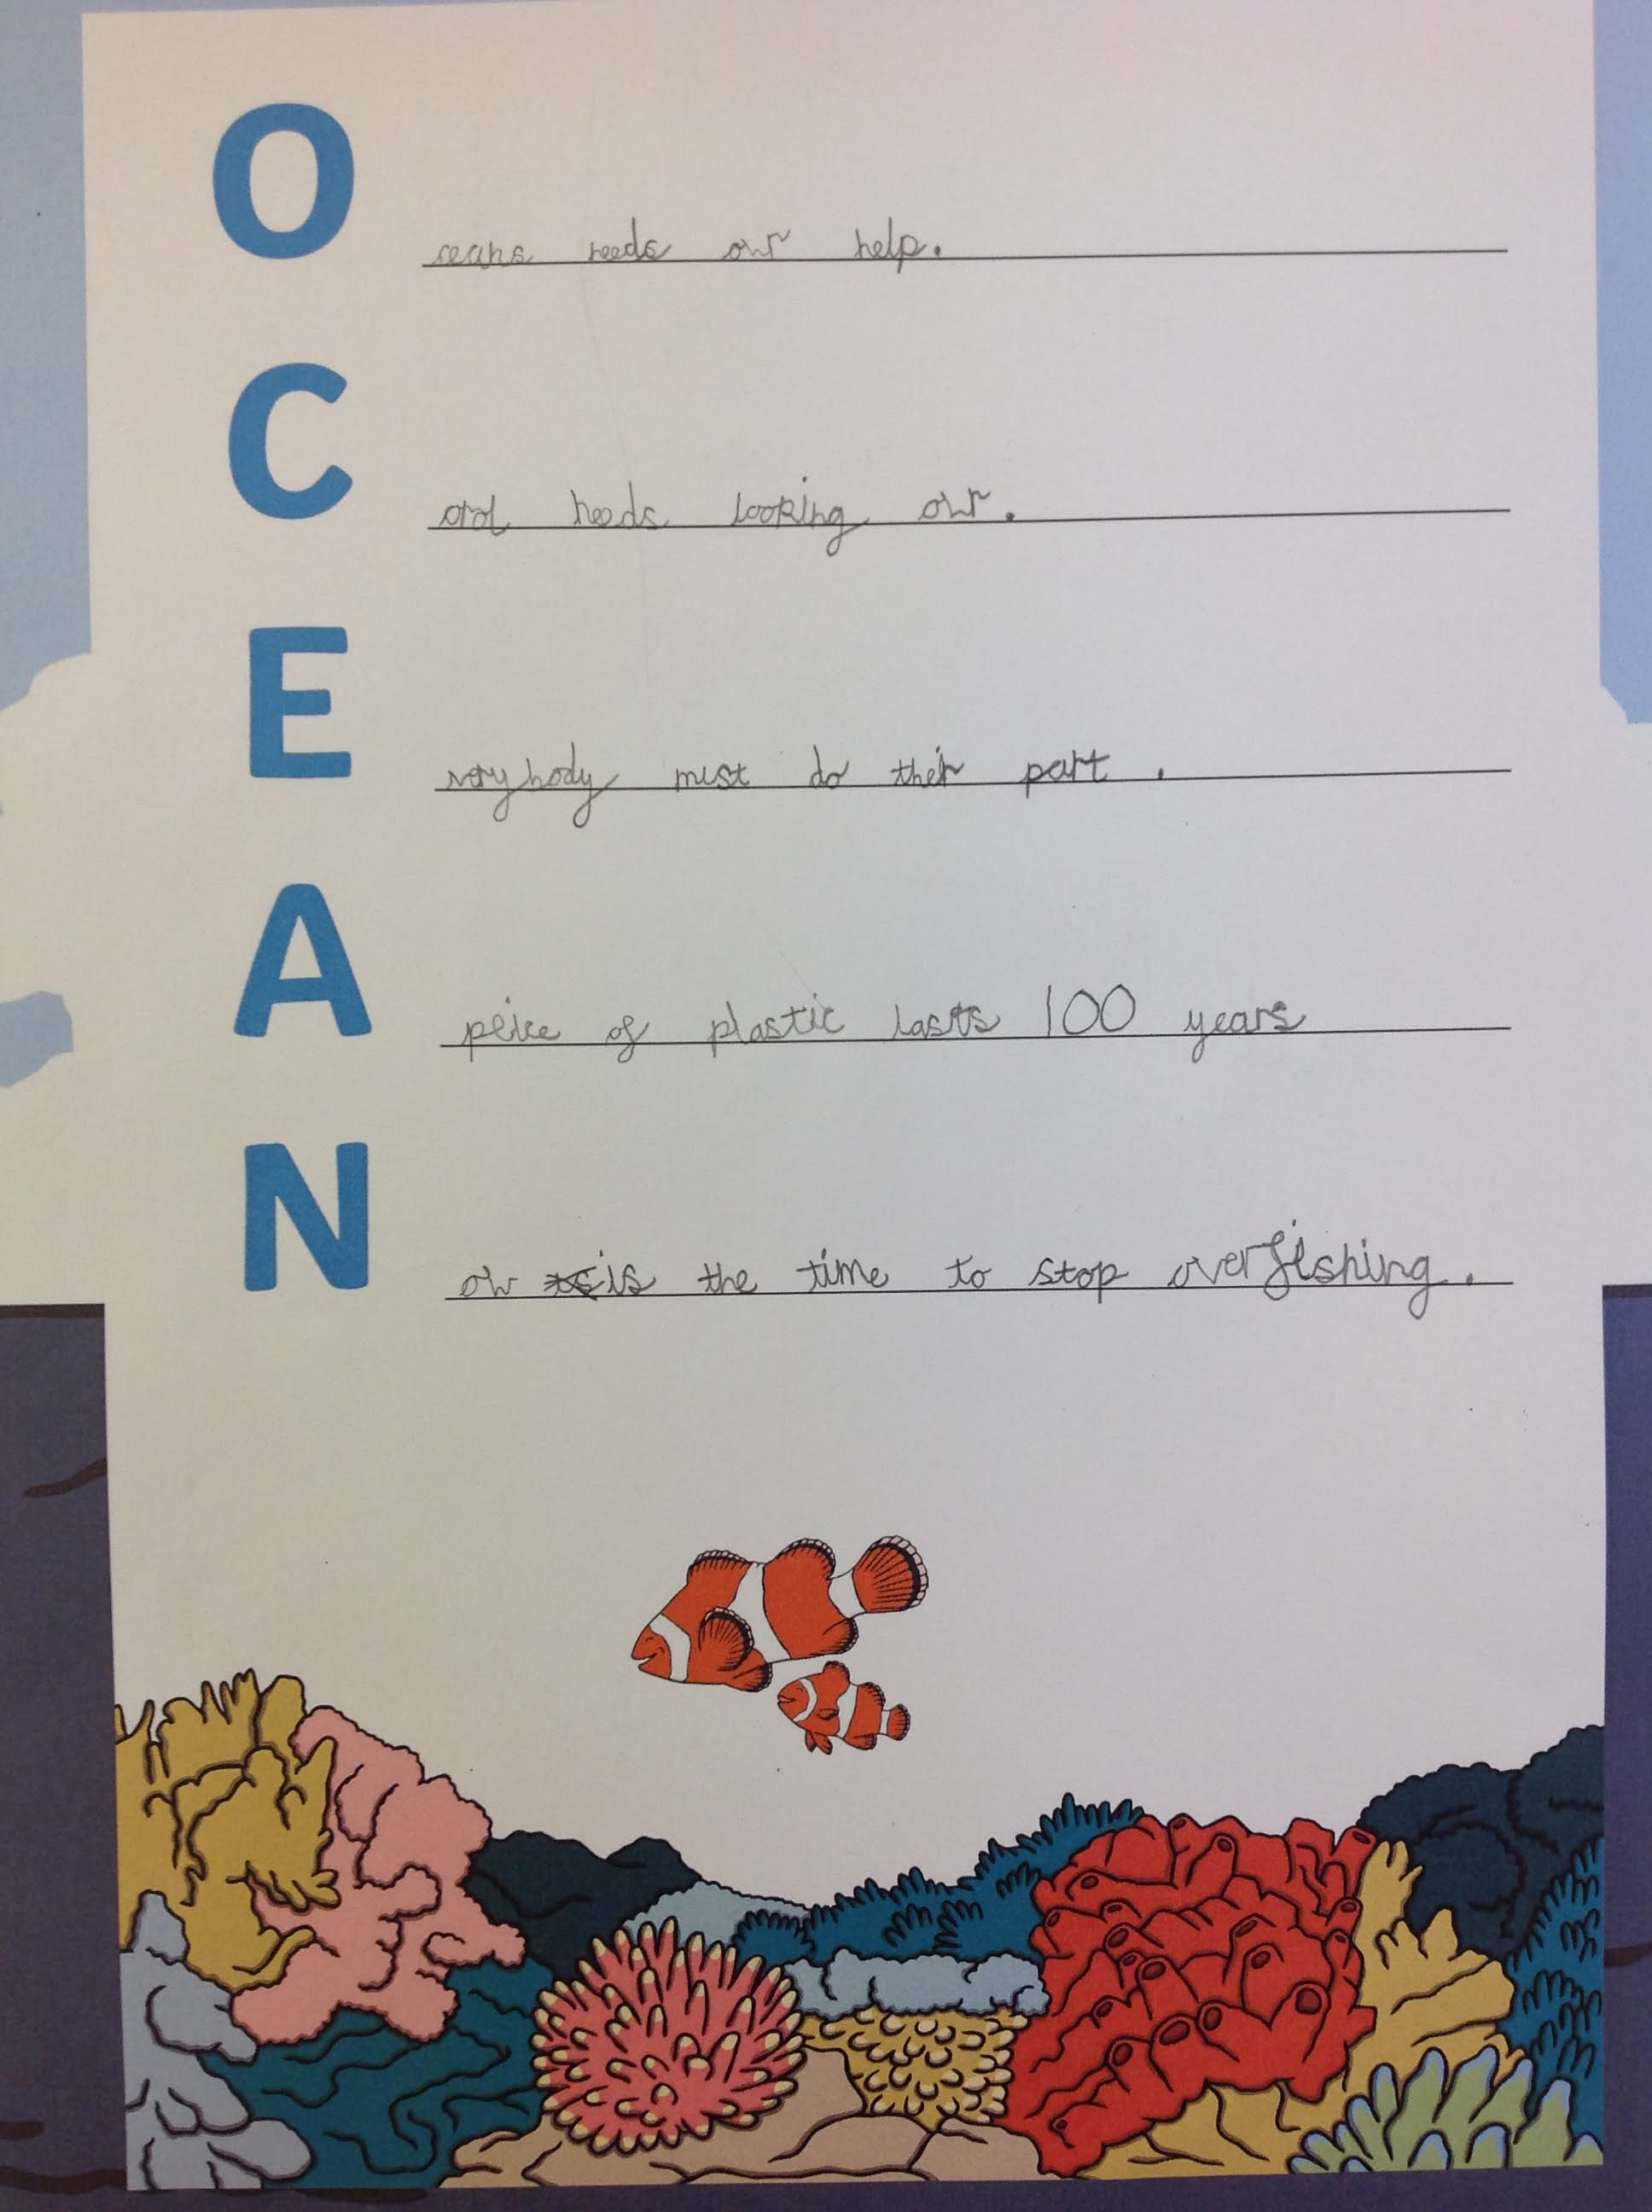 Oceans needs our help.
Coral needs looking our.
Everybody must do their part.
A peice of plastic lasts 100 years
Now is the time to stop overfishing.